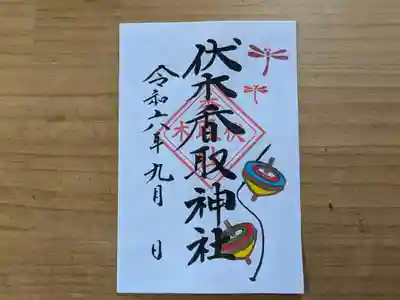 伏木香取神社
令和六年九月 日